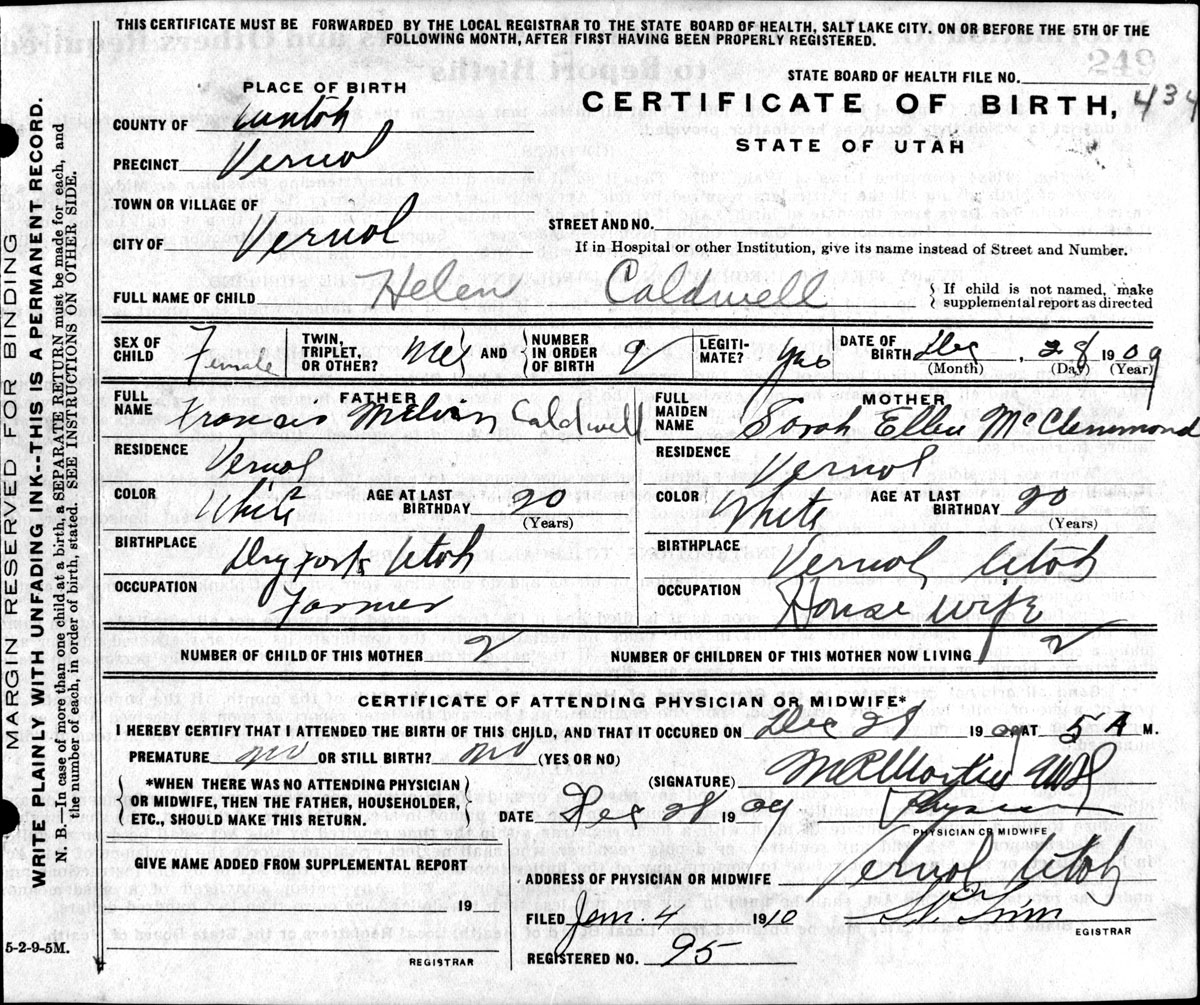 THIS CERTIFICATE MUST BE FORWARDED BY THE LOCAL REGISTRAR TO THE STATE BOARD OF HEALTH, SALT LAKE CITY. ON OR BEFORE THE 5TH OF THE
FOLLOWING MONTH, AFTER FIRST HAVING BEEN PROPERLY REGISTERED.
STATE BOARD OF HEALTH FILE NO.
249
PLACE OF BIRTH
CERTIFICATE OF BIRTH, 434
STATE OF UTAH
COUNTY OF
PRECINCT Vernal
TOWN OR VILLAGE OF
CITY OF Vernal STREET AND NO.
If in Hospital or other Institution, give its name instead of Street and Number.
FULL NAME OF CHILD Helen Caldwell { If child is not named, make
supplemental report as directed
SEX OF CHILD Female TWIN, TRIPLET, OR OTHER? AND { NUMBER IN ORDER OF BIRTH LEGITI-MATE? yes DATE OF BIRTH Dec, 28 1909
(Month) (Day) (Year)
FATHER
FULL NAME Francis Caldwell
RESIDENCE Vernal
COLOR White AGE AT LAST BIRTHDAY 20
(Years)
BIRTHPLACE Dryfork Utah
OCCUPATION Farmer
MOTHER
FULL MAIDEN NAME Sarah Ellen
RESIDENCE Vernal
COLOR White AGE AT LAST BIRTHDAY 20
(Years)
BIRTHPLACE Vernal Utah
OCCUPATION House wife
NUMBER OF CHILD OF THIS MOTHER 2 NUMBER OF CHILDREN OF THIS MOTHER NOW LIVING 2
CERTIFICATE OF ATTENDING PHYSICIAN OR MIDWIFE*
I HEREBY CERTIFY THAT I ATTENDED THE BIRTH OF THIS CHILD, AND THAT IT OCCURED ON Dec 28 1909 AT 5 A M.
PREMATURE no OR STILL BIRTH? no (YES OR NO)
(SIGNATURE)
{ *WHEN THERE WAS NO ATTENDING PHYSICIAN
OR MIDWIFE, THEN THE FATHER, HOUSEHOLDER,
ETC., SHOULD MAKE THIS RETURN. }
DATE Dec 28 1909
PHYSICIAN OR MIDWIFE
GIVE NAME ADDED FROM SUPPLEMENTAL REPORT
19
REGISTRAR
ADDRESS OF PHYSICIAN OR MIDWIFE Vernal Utah
FILED Jan. 4 1910
EGISTRAR
REGISTERED NO. 95
5-2-9-5M.
MARGIN RESERVED FOR BINDING
WRITE PLAINLY WITH UNFADING INK--THIS IS A PERMANENT RECORD.
N. B.—In case of more than one child at a birth, a SEPARATE RETURN must be made for each, and
the number of each, in order of birth, stated. SEE INSTRUCTIONS ON OTHER SIDE.